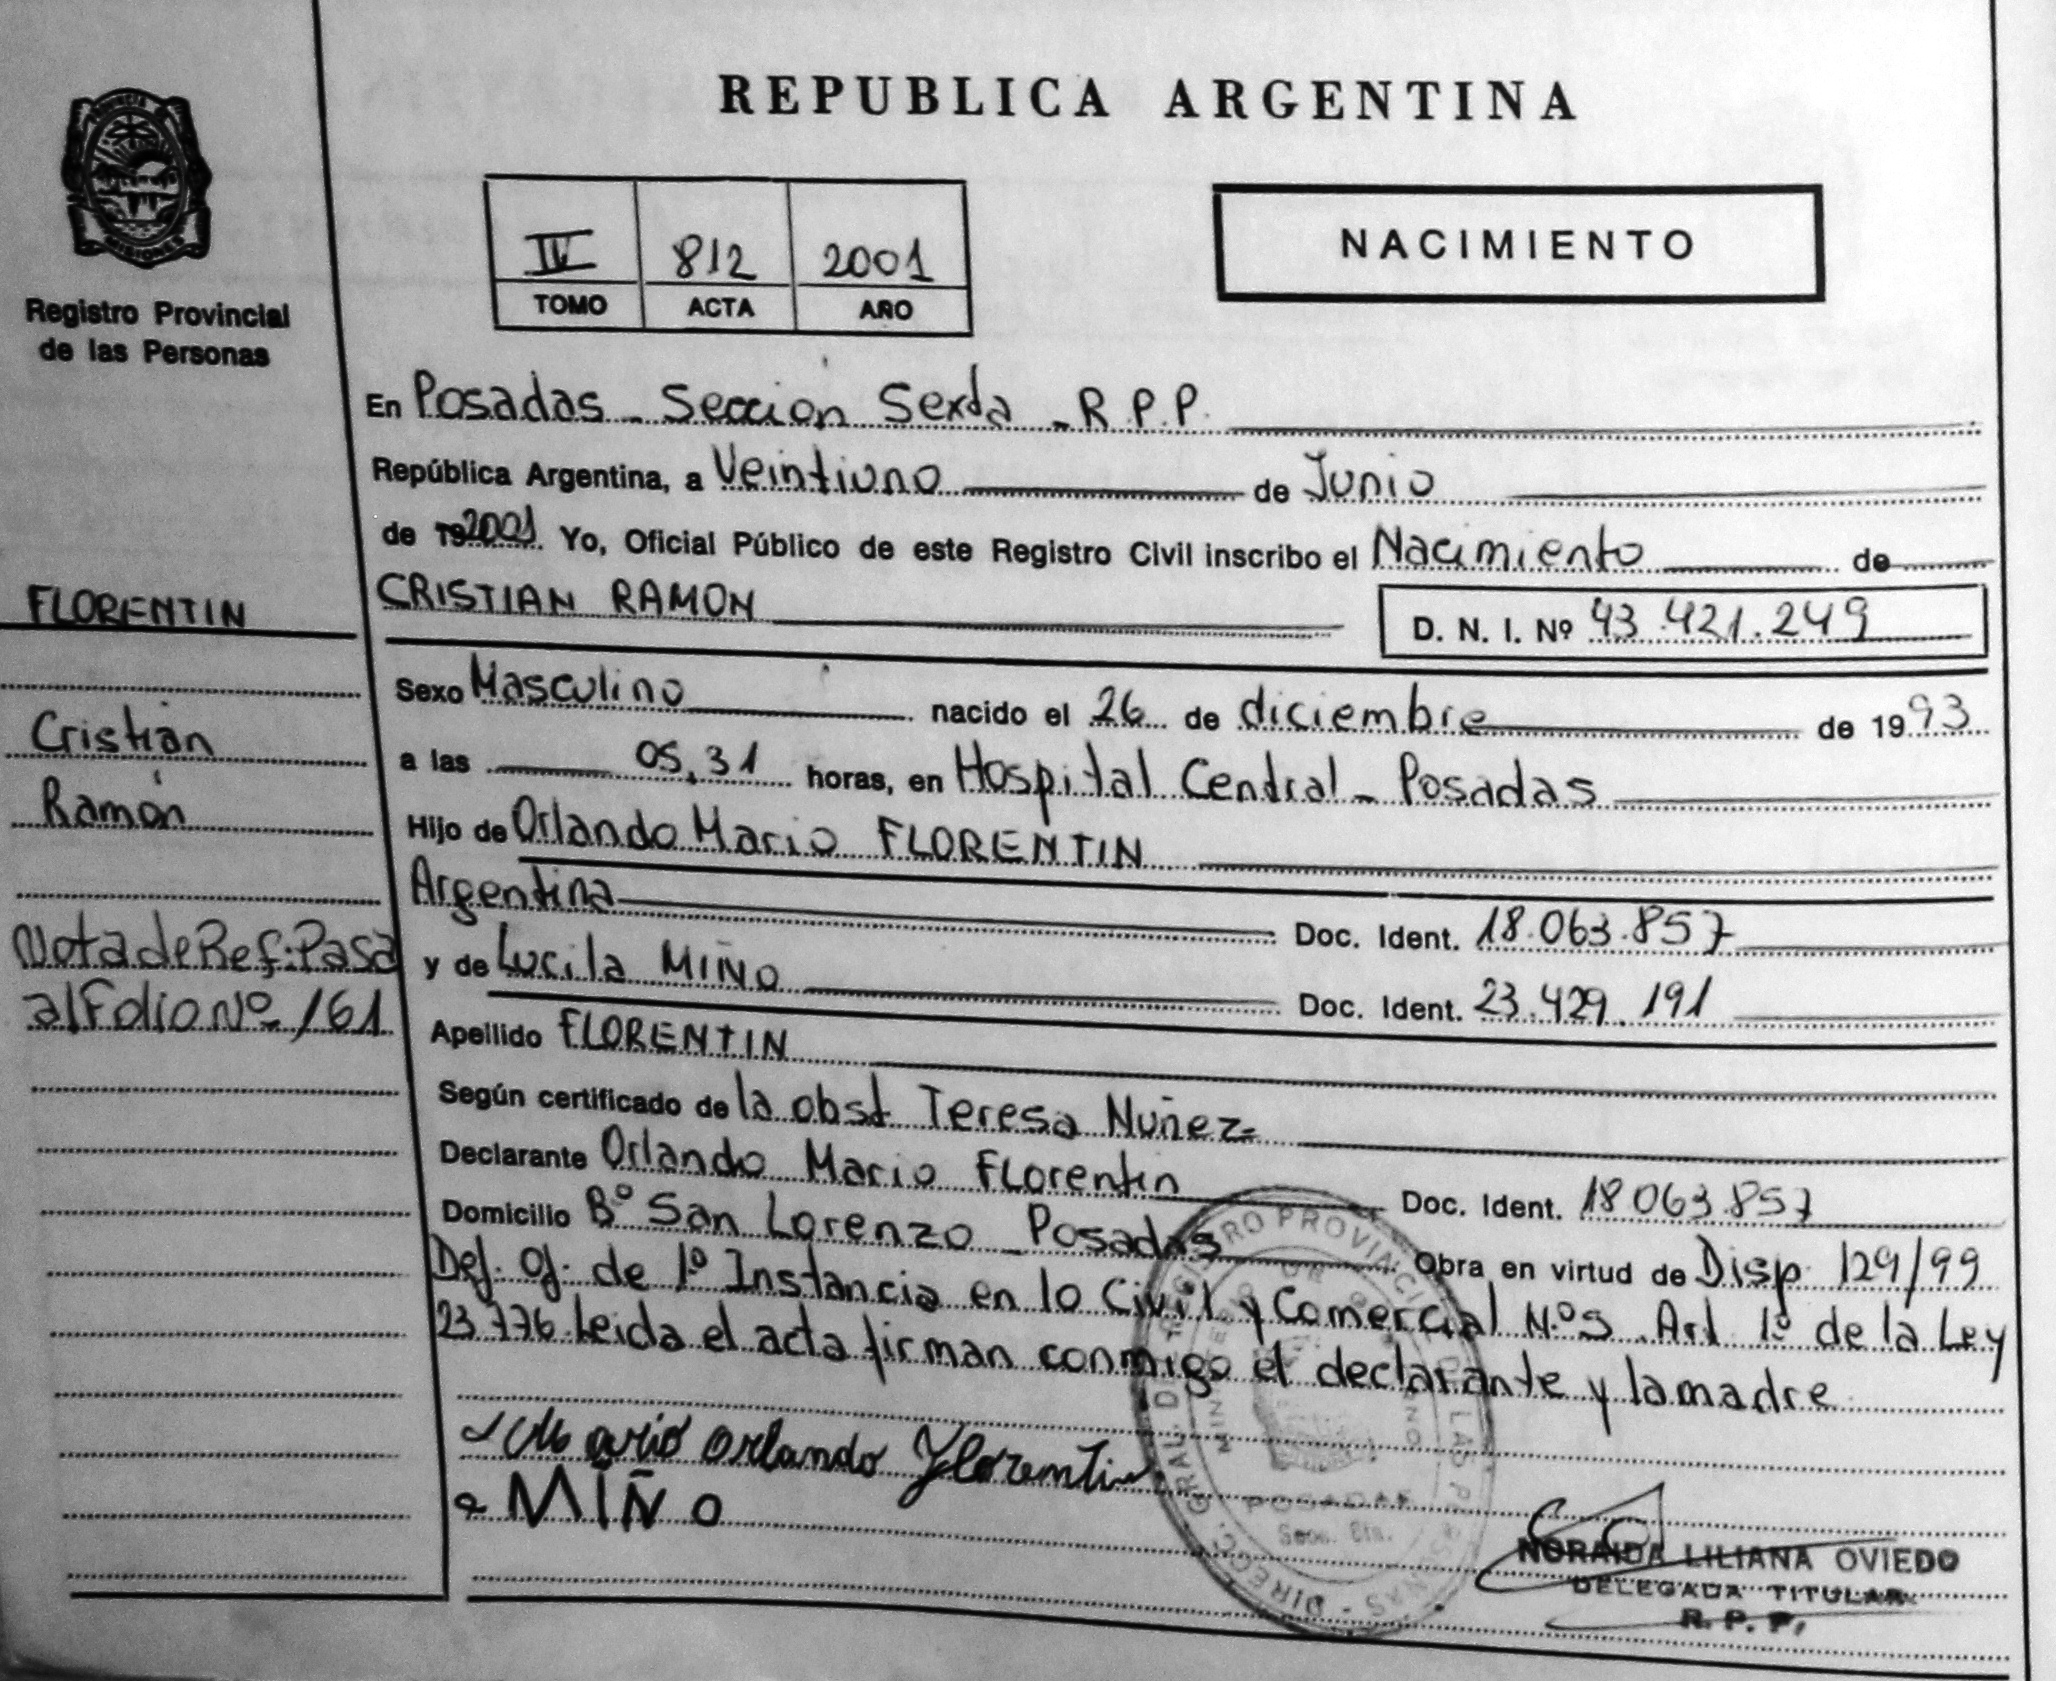 REPUBLICA ARGENTINA
Registro Provincial
de las Personas
MISIONES
IV 812 2001
TOMO ACTA AÑO
NACIMIENTO
En Posadas - Sección Sexta - R.P.P.
República Argentina, a Veintiuno de Junio
de 192001. Yo, Oficial Público de este Registro Civil inscribo el Nacimiento de
FLORENTIN
CRISTIAN RAMON
D. N. I. Nº 43.421.249
Sexo Masculino nacido el 26 de diciembre de 1993
Cristian
a las 05,31 horas, en Hospital Central - Posadas
Ramón
Hijo de Orlando Mario FLORENTIN
Argentina Doc. Ident. 18.063.857
Nota de Ref: Pasa
y de Lucila MIÑO Doc. Ident. 23.429.191
al Folio Nº 161
Apellido FLORENTIN
Según certificado de la obst Teresa Nuñez
Declarante Orlando Mario Florentin Doc. Ident. 18 063.857
Domicilio Bº San Lorenzo - Posadas Obra en virtud de Disp 129/99
Def. Of. de 1º Instancia en lo Civil y Comercial N.º 5 Art 1º de la Ley
23.776. Leida el acta firman conmigo el declarante y la madre
Mario Orlando Florentin
MIÑO
DIRECC. GRAL. DE REGISTRO PROVINCIAL DE LAS PERSONAS
POSADAS
NORAIDA LILIANA OVIEDO
DELEGADA TITULAR
R. P. P.